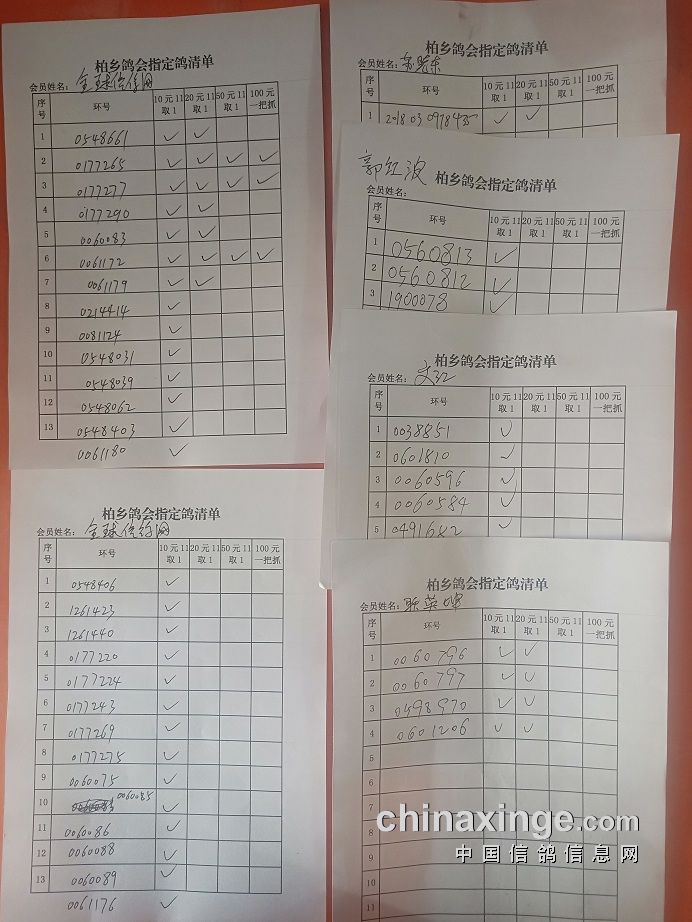 柏乡鸽会指定鸽清单
会员姓名：全球信鸽网
序号 环号 10元11取1 20元11取1 50元11取1 100元一把抓
1 0548661 ✓ ✓
2 0177265 ✓ ✓ ✓ ✓
3 0177277 ✓ ✓ ✓ ✓
4 0177290 ✓ ✓
5 0060083 ✓ ✓
6 0061172 ✓ ✓ ✓ ✓
7 0061179 ✓ ✓
8 0214414 ✓
9 0081124 ✓
10 0548031 ✓
11 0548039 ✓
12 0548062 ✓
13 0548403 ✓
0061180 ✓
柏乡鸽会指定鸽清单
会员姓名：全球信鸽网
序号 环号 10元11取1 20元11取1 50元11取1 100元一把抓
1 0548406 ✓
2 1261423 ✓
3 1261440 ✓
4 0177220 ✓
5 0177224 ✓
6 0177243 ✓
7 0177269 ✓
8 0177275 ✓
9 0060075 ✓
10 0060085 ✓
11 0060086 ✓
12 0060088 ✓
13 0060089 ✓
0061176 ✓
柏乡鸽会指定鸽清单
会员姓名：
序号 环号 10元11取1 20元11取1 50元11取1 100元一把抓
1 2018 03 0978435 ✓ ✓
郭红波
柏乡鸽会指定鸽清单
会员姓名：
序号 环号 10元11取1 20元11取1 50元11取1 100元一把抓
1 0560813 ✓
2 0560812 ✓
3 1900078 ✓
柏乡鸽会指定鸽清单
会员姓名：
序号 环号 10元11取1 20元11取1 50元11取1 100元一把抓
1 0038851 ✓
2 0601810 ✓
3 0060596 ✓
4 0060584 ✓
5 0491682 ✓
柏乡鸽会指定鸽清单
会员姓名：
序号 环号 10元11取1 20元11取1 50元11取1 100元一把抓
1 0060796 ✓ ✓
2 0060797 ✓ ✓
3 0598970 ✓ ✓
4 0601206 ✓ ✓
5
6
7
8
9
10
11
chinaxinge.com
中国信鸽信息网